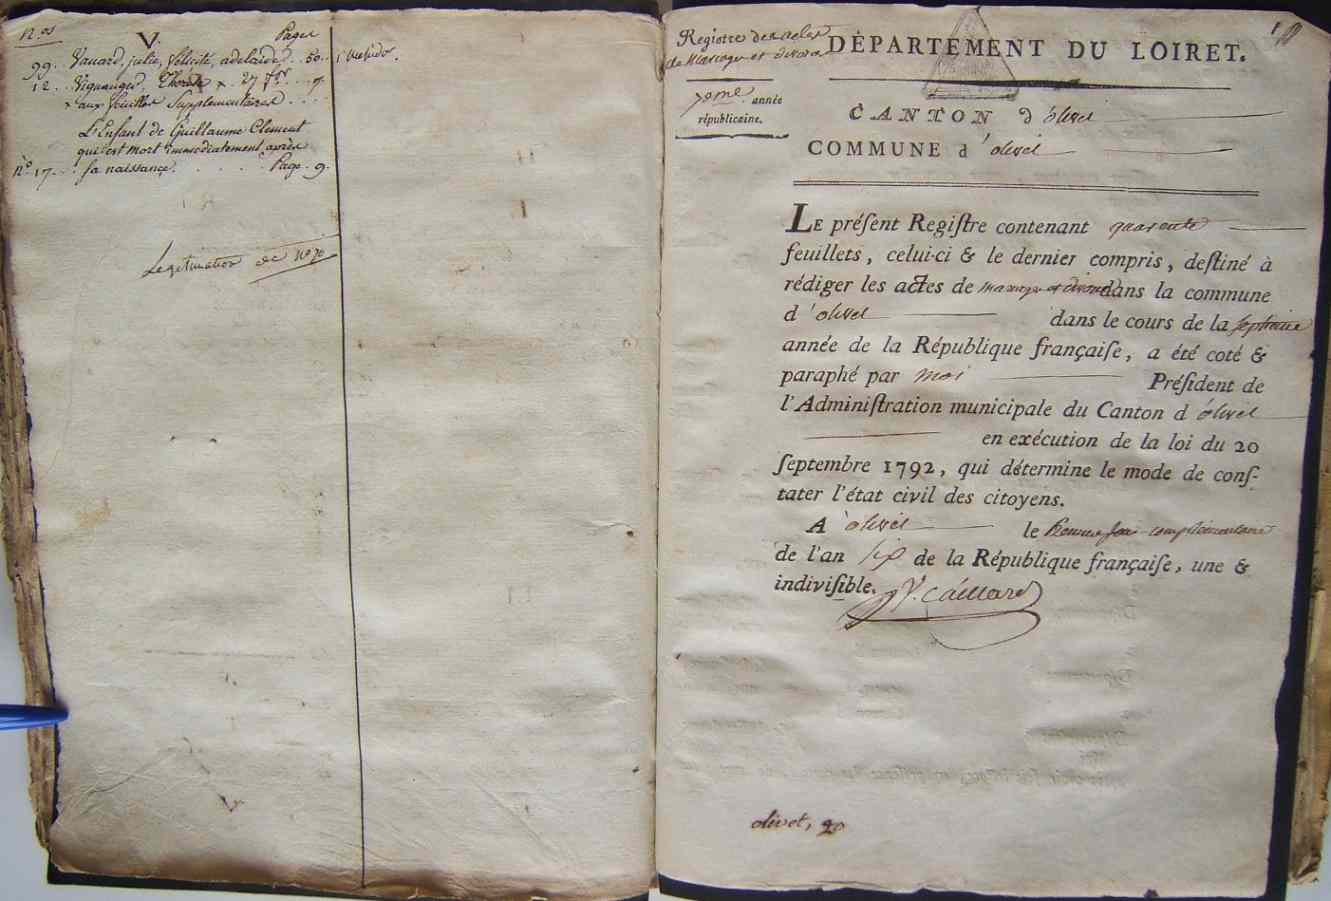 Nos
Pages
V.
99. Vanard, julie, félicité, adelaide. 50.
12. 27 fr. 9.
aux feuilles Supplementaires . . . .
L'Enfant de Guillaume Clement
qui est mort immediatement après
No. 17. . . Sa naissance. . . . . . Page. 9.
Legitimation de No 70
Registre des actes
de Mariages et divorce
7eme. année
républicaine.
DÉPARTEMENT DU LOIRET.
CANTON d'olivet
COMMUNE d'olivet
LE préſent Regiſtre contenant quarente
feuillets, celui-ci & le dernier compris, deſtiné à
rédiger les actes de mariages et divorce dans la commune
d'olivet dans le cours de la septieme
année de la République françaiſe, a été coté &
paraphé par moi Préſident de
l'Adminiſtration municipale du Canton d'olivet
en exécution de la loi du 20
ſeptembre 1792, qui détermine le mode de conſ-
tater l'état civil des citoyens.
A olivet le complémentaire
de l'an six de la République françaiſe, une &
indiviſible.
olivet, 20